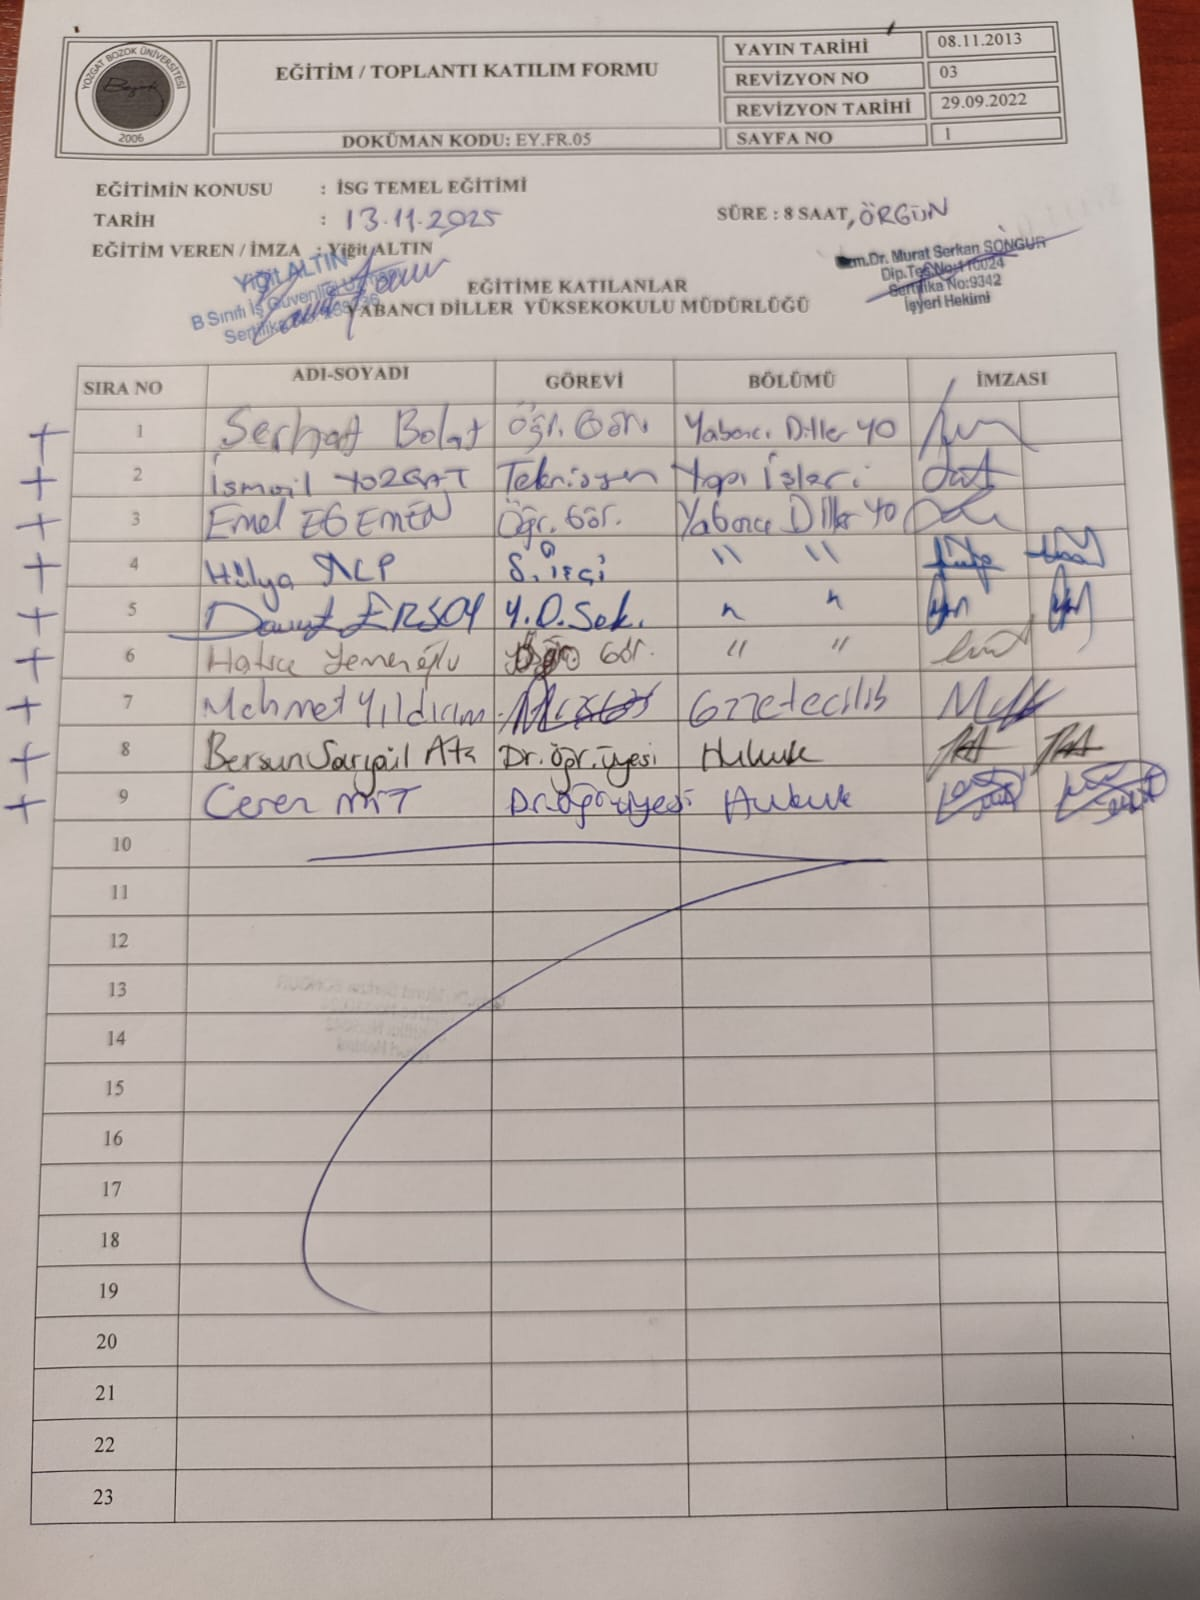 YOZGAT BOZOK ÜNİVERSİTESİ
Bozok
2006
EĞİTİM / TOPLANTI KATILIM FORMU
DOKÜMAN KODU: EY.FR.05
YAYIN TARİHİ 08.11.2013
REVİZYON NO 03
REVİZYON TARİHİ 29.09.2022
SAYFA NO 1
EĞİTİMİN KONUSU : İSG TEMEL EĞİTİMİ
TARİH : 13.11.2025 SÜRE : 8 SAAT, ÖRGÜN
EĞİTİM VEREN / İMZA : Yiğit ALTIN
Yiğit ALTIN
B Sınıfı İş Güvenliği
Sertifika
Dr. Murat Serkan SONGUR
Dip.Tes.No:110024
Sertifika No:9342
İşyeri Hekimi
EĞİTİME KATILANLAR
YABANCI DİLLER YÜKSEKOKULU MÜDÜRLÜĞÜ
SIRA NO ADI-SOYADI GÖREVİ BÖLÜMÜ İMZASI
+ 1 Serhat Bolat Öğr. Gör. Yabancı Diller YO
+ 2 İsmail YOZGAT Teknisyen Yapı İşleri
+ 3 Emel EGEMEN Öğr. Gör. Yabancı Diller YO
+ 4 Hülya ALP S. İşçi " "
+ 5 Davut ERSOY Y.O.Sek. " "
+ 6 Hatice Yemenoğlu Gör. " "
+ 7 Mehmet Yıldırım Gazetecilik
+ 8 Bersun Dr. öğr. üyesi Hukuk
+ 9 Ceren Dr. öğr. üyesi Hukuk
10
11
12
13
14
15
16
17
18
19
20
21
22
23